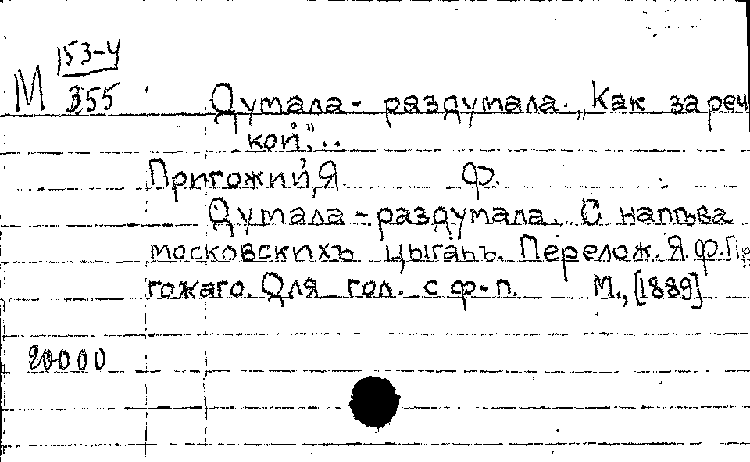 М 153-4
355
Думала - раздумала. „Как за реч
кой"...
Пригожий, Я Ф.
Думала - раздумала. С напѣва
московскихъ цыганъ. Перелож. Я.Ф.Пр
гожаго. Для гол. с ф-п. М., [1889]
20000